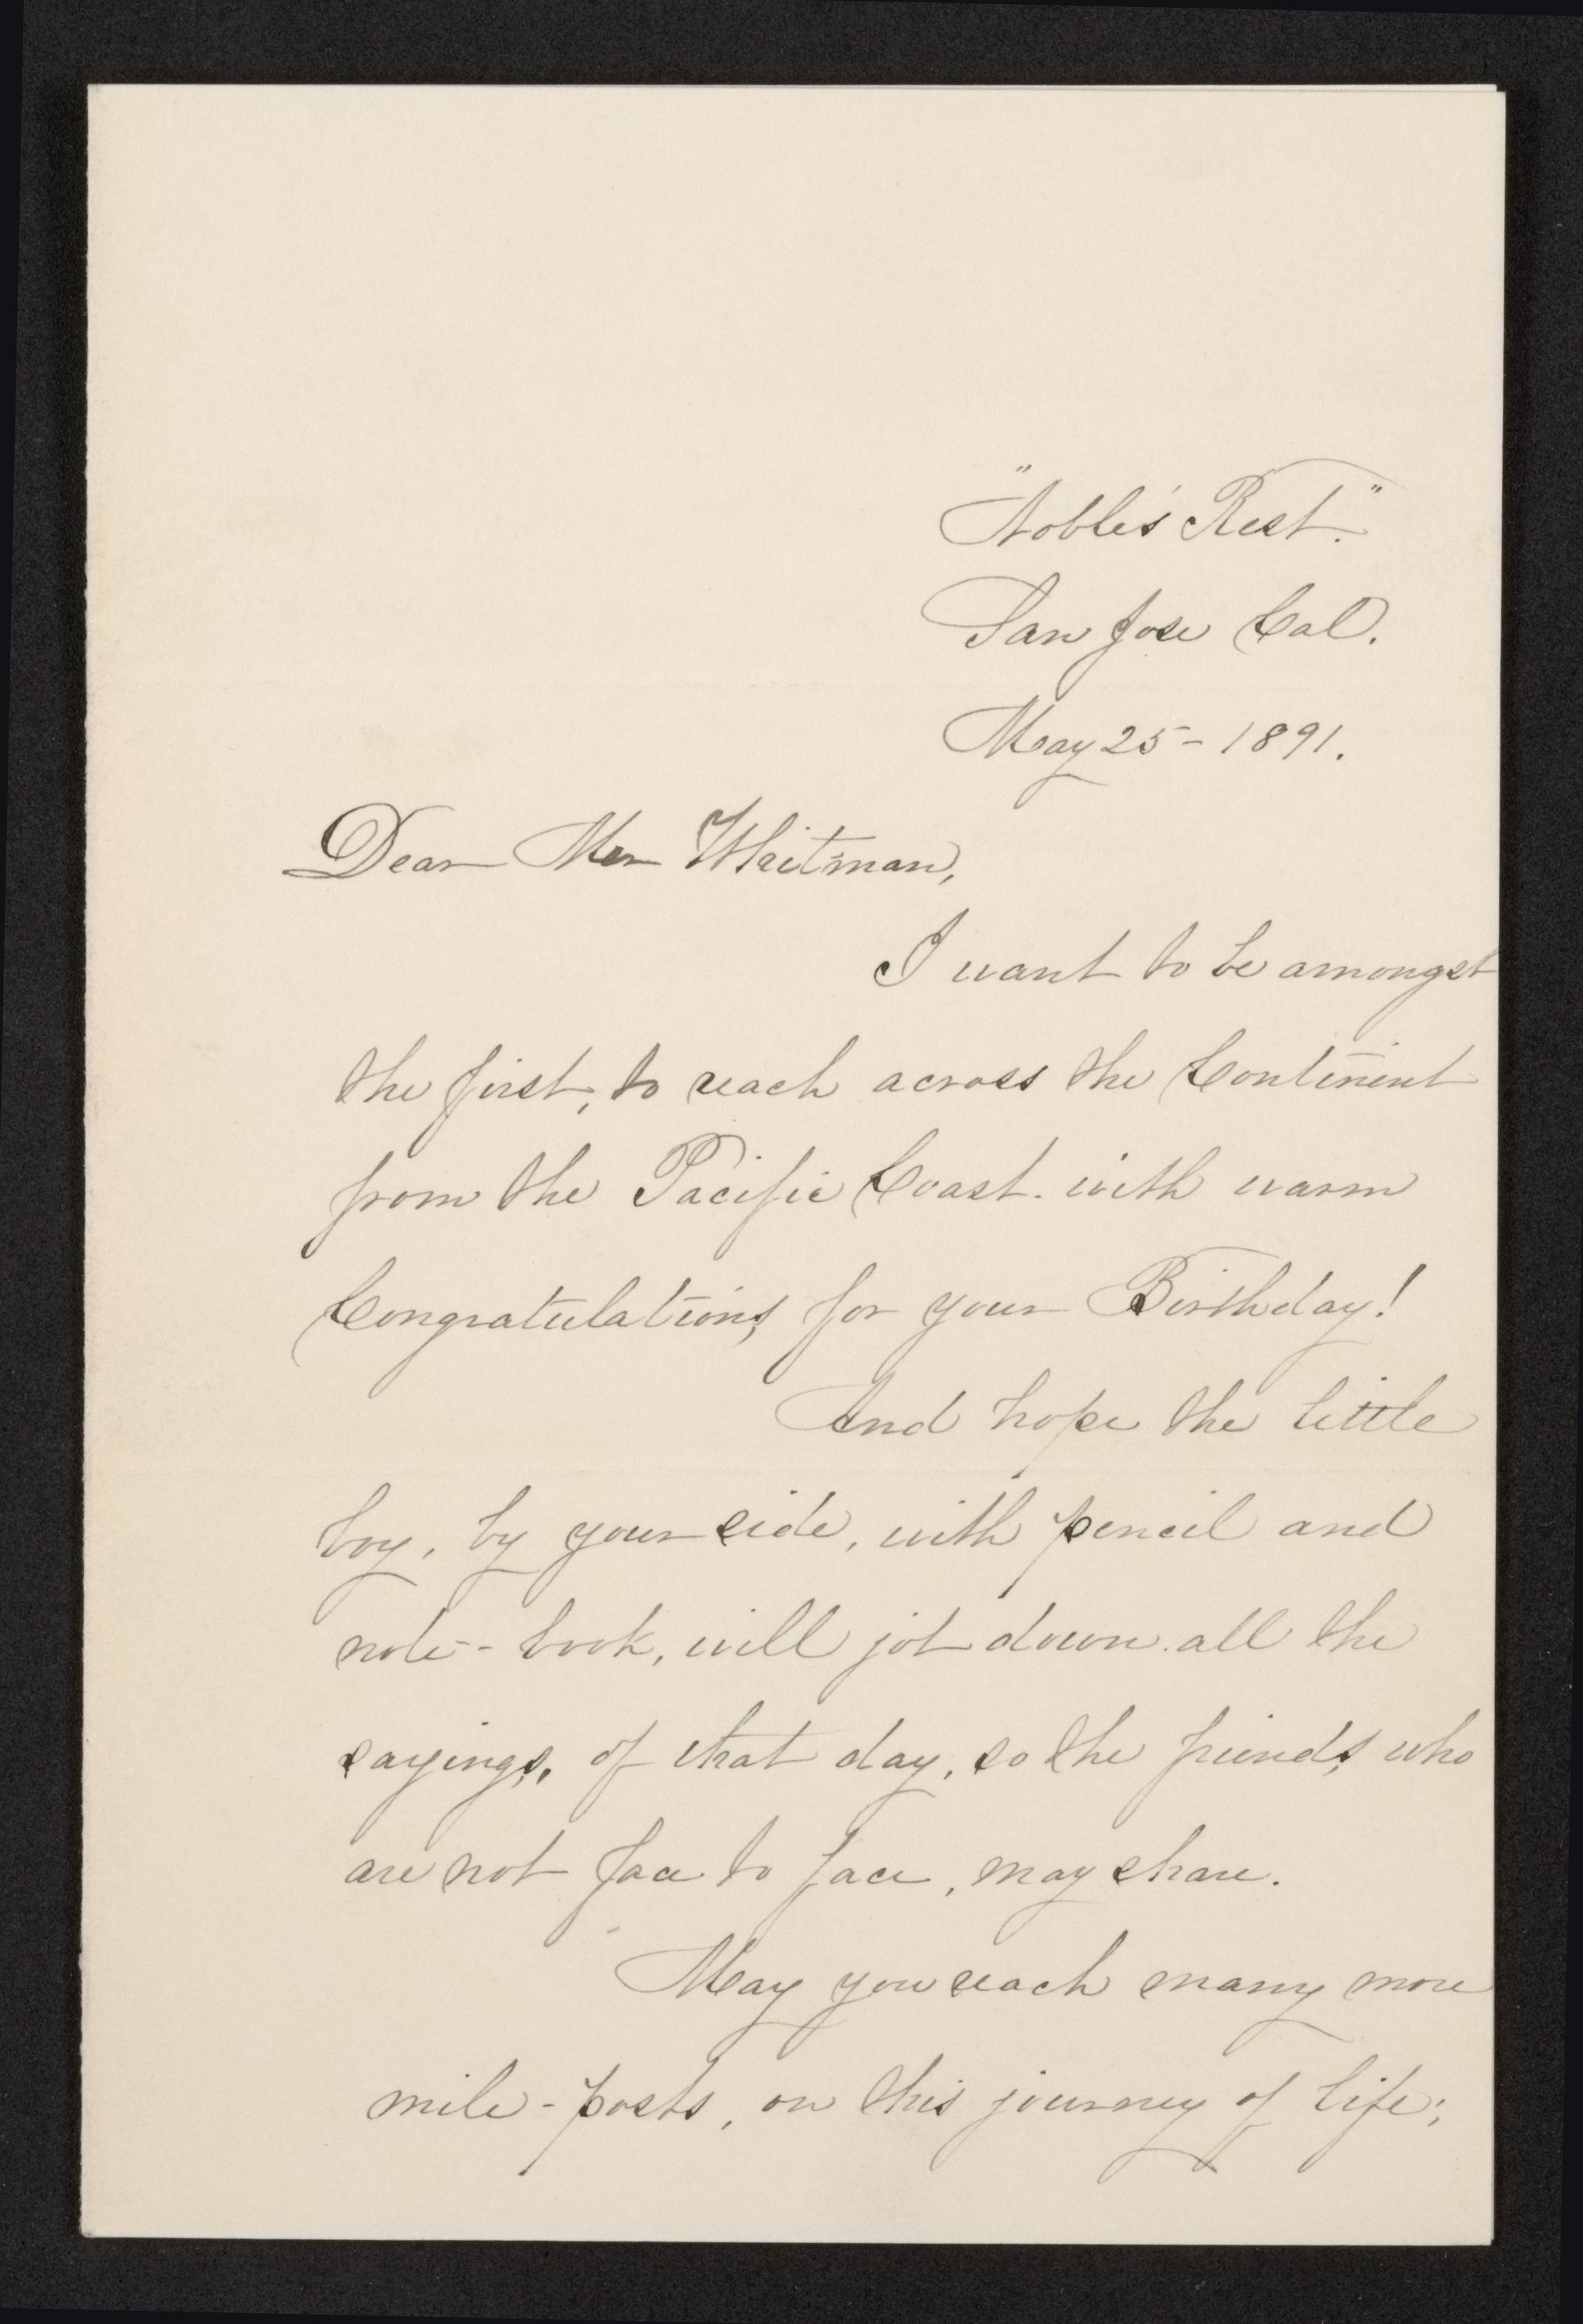 "Noble's Rest."
San Jose Cal.
May 25 - 1891.
Dear Mr Whitman,
I want to be amongst
the first, to reach across the Continent
from the Pacific Coast. with warm
Congratulations, for your Birthday!
And hope the little
boy, by your side, with pencil and
note-book, will jot down all the
sayings, of that day, so the friends, who
are not face to face, may share.
May you reach many more
mile-posts, on this journey of life;